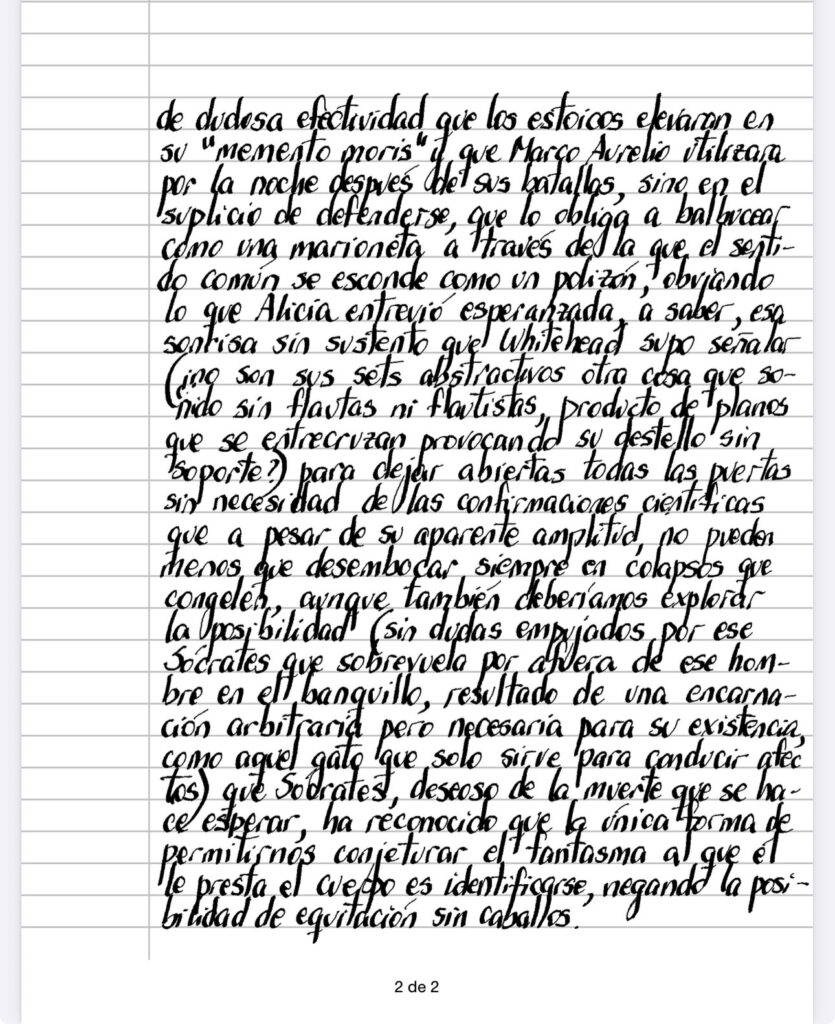 de dudosa efectividad que los estoicos elevaran en
su "memento moris" y que Marco Aurelio utilizara
por la noche después de sus batallas, sino en el
suplicio de defenderse, que lo obliga a balbucear
como una marioneta a través de la que el senti-
do común se esconde como un polizón, obviando
lo que Alicia entrevió esperanzada, a saber, esa
sonrisa sin sustento que Whitehead supo señalar
(¿no son sus sets abstractivos otra cosa que so-
nido sin flautas ni flautistas, producto de planos
que se entrecruzan provocando su destello sin
soporte?) para dejar abiertas todas las puertas
sin necesidad de las confirmaciones científicas
que a pesar de su aparente amplitud, no pueden
menos que desembocar siempre en colapsos que
congelen, aunque también deberíamos explorar
la posibilidad (sin dudas empujados por ese
Sócrates que sobrevuela por afuera de ese hom-
bre en el banquillo, resultado de una encarna-
ción arbitraria pero necesaria para su existencia,
como aquel gato que solo sirve para conducir afec
tos) que Sócrates, deseoso de la muerte que se ha-
ce esperar, ha reconocido que la única forma de
permitirnos conjeturar el fantasma al que él
le presta el cuerpo es identificarse, negando la posi-
bilidad de equitación sin caballos.
2 de 2